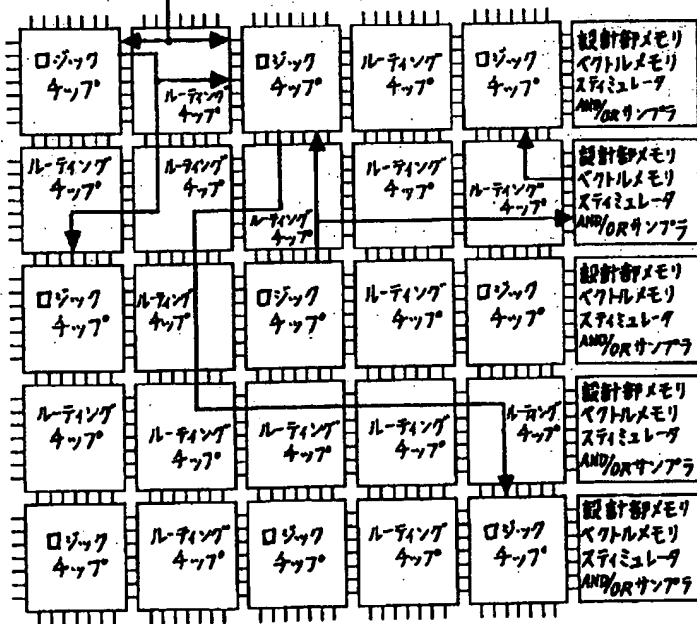 ロジック
チップ
ルーティング
チップ
ロジック
チップ
ルーティング
チップ
ロジック
チップ
設計部メモリ
ベクトルメモリ
スティミュレータ
AND/ORサンプラ
ルーティング
チップ
ルーティング
チップ
ルーティング
チップ
ルーティング
チップ
ルーティング
チップ
設計部メモリ
ベクトルメモリ
スティミュレータ
AND/ORサンプラ
ロジック
チップ
ルーティング
チップ
ロジック
チップ
ルーティング
チップ
ロジック
チップ
設計部メモリ
ベクトルメモリ
スティミュレータ
AND/ORサンプラ
ルーティング
チップ
ルーティング
チップ
ルーティング
チップ
ルーティング
チップ
ルーティング
チップ
設計部メモリ
ベクトルメモリ
スティミュレータ
AND/ORサンプラ
ロジック
チップ
ルーティング
チップ
ロジック
チップ
ルーティング
チップ
ロジック
チップ
設計部メモリ
ベクトルメモリ
スティミュレータ
AND/ORサンプラ